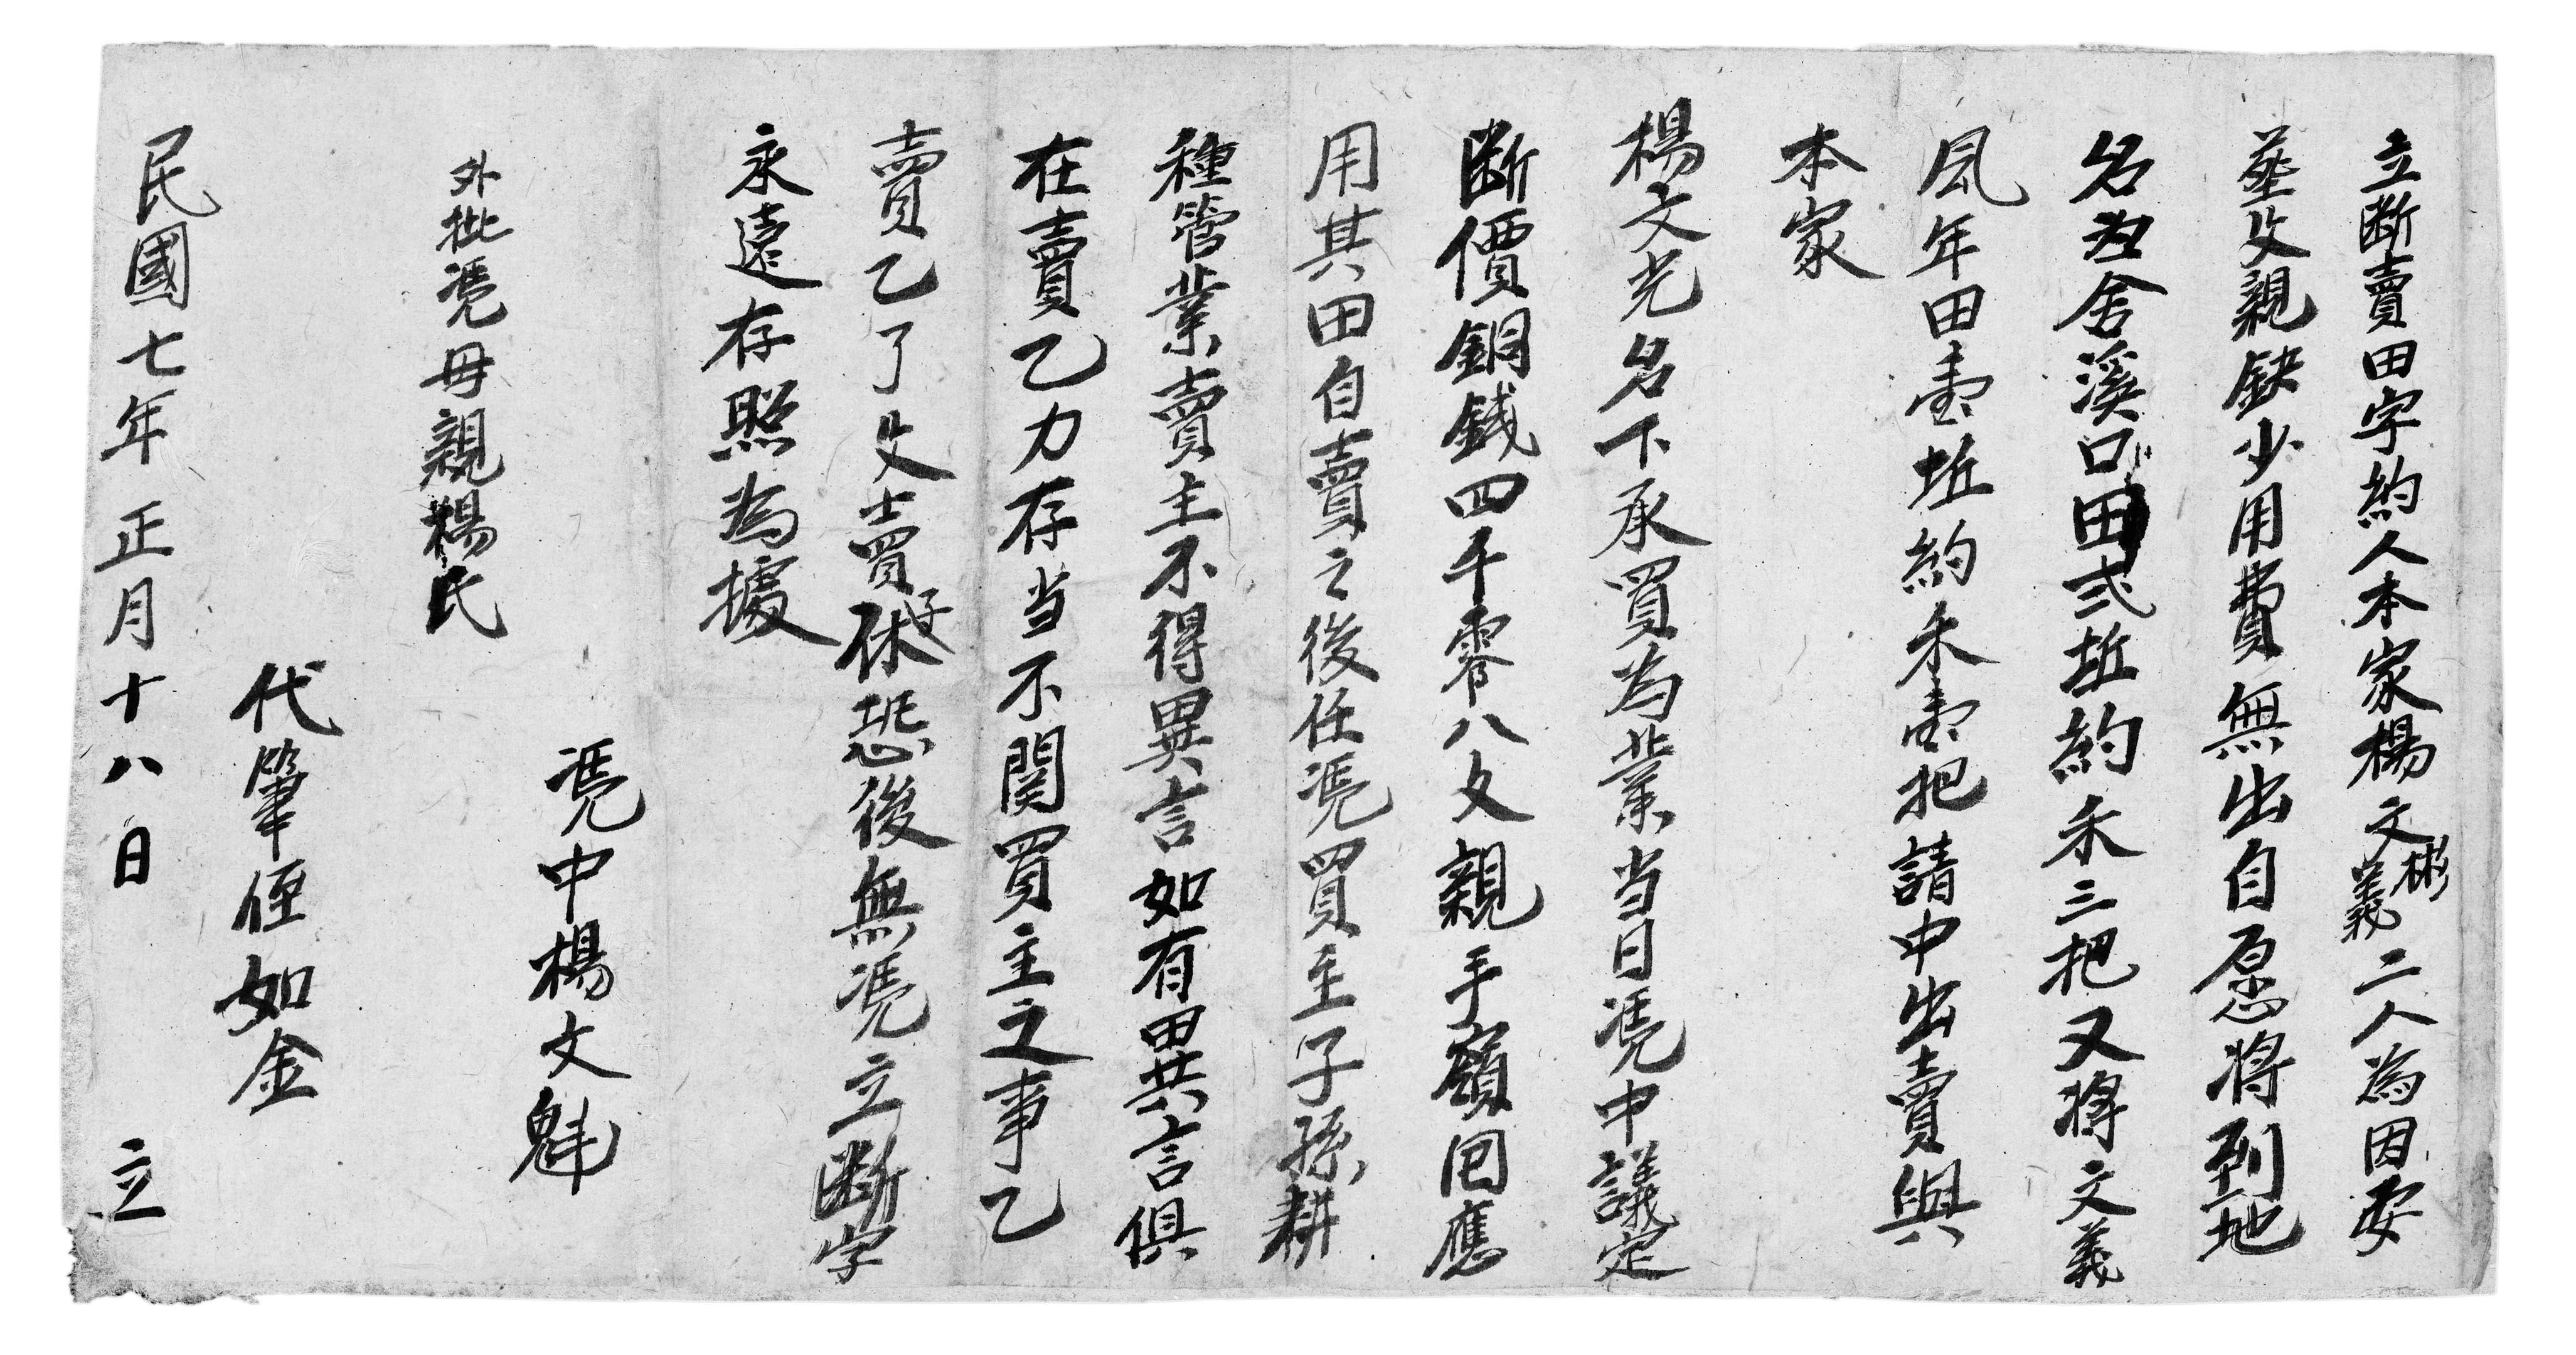 立断賣田字約人本家楊文彬義二人為因安
塟父親缺少用費無出自愿将到地
名為舍溪口田弍坵約禾三把又将文義
風年田壹坵約禾壹把請中出賣與
本家
楊文光名下承買為業当日凴中議定
断價銅錢四千零八文親手領囘應
用其田自賣之後任凴買主子孫耕
種管業賣主不得異言如有異言俱
在賣乙力存当不関買主之事乙
賣乙了父賣子休恐後無凴立断字
永遠存照為據
凴中楊文魁
外批凴母親楊氏
代筆侄如金
民國七年正月十八日 立